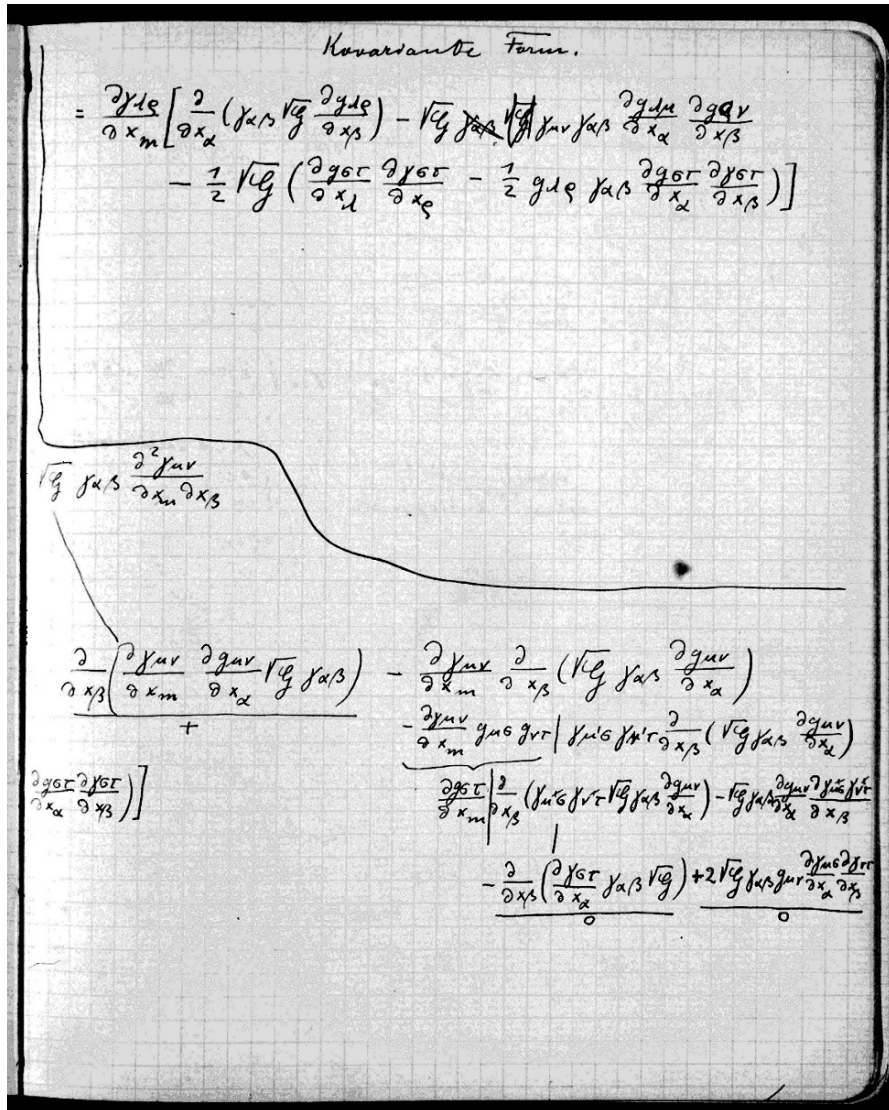 Kovariante Form.
= ∂γ_λρ/∂x_m [ ∂/∂x_α (γ_αβ √G ∂g_λρ/∂x_β) − √G γ_μν γ_αβ ∂g_λμ/∂x_α ∂g_ρν/∂x_β
− 1/2 √G ( ∂g_στ/∂x_λ ∂γ_στ/∂x_ρ − 1/2 g_λρ γ_αβ ∂g_στ/∂x_α ∂γ_στ/∂x_β ) ]
√G γ_αβ ∂²γ_μν/∂x_m ∂x_β
∂/∂x_β ( ∂γ_μν/∂x_m ∂g_μν/∂x_α √G γ_αβ ) − ∂γ_μν/∂x_m ∂/∂x_β (√G γ_αβ ∂g_μν/∂x_α)
+
− ∂γ_μν/∂x_m g_μσ g_ντ | γ_μ'σ γ_ν'τ ∂/∂x_β (√G γ_αβ ∂g_μν/∂x_α)
∂g_στ/∂x_α ∂γ_στ/∂x_β ) ]
∂g_στ/∂x_m | ∂/∂x_β (γ_μ'σ γ_ν'τ √G γ_αβ ∂g_μν/∂x_α) − √G γ_αβ ∂g_μν/∂x_α ∂γ_μ'σ γ_ν'τ/∂x_β
− ∂/∂x_β ( ∂γ_στ/∂x_α γ_αβ √G ) + 2 √G γ_αβ g_μν ∂γ_μσ/∂x_α ∂γ_ντ/∂x_β
0 0